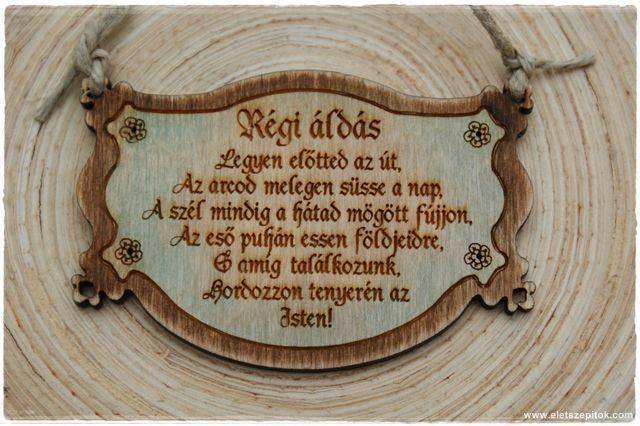 Régi áldás
Legyen előtted az út,
Az arcod melegen süsse a nap,
A szél mindig a hátad mögött fújjon,
Az eső puhán essen földjeidre,
S amíg találkozunk,
Hordozzon tenyerén az
Isten!
www.eletszepitok.com